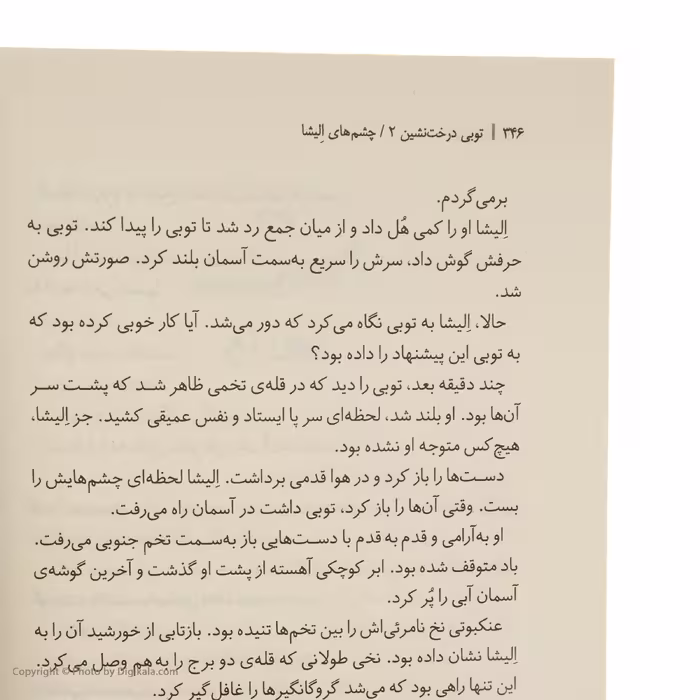 ۳۴۶ ‖ توبی درخت‌نشین ۲ / چشم‌های اِلیشا
برمی‌گردم.
اِلیشا او را کمی هُل داد و از میان جمع رد شد تا توبی را پیدا کند. توبی به
حرفش گوش داد، سرش را سریع به‌سمت آسمان بلند کرد. صورتش روشن
شد.
حالا، اِلیشا به توبی نگاه می‌کرد که دور می‌شد. آیا کار خوبی کرده بود که
به توبی این پیشنهاد را داده بود؟
چند دقیقه بعد، توبی را دید که در قله‌ی تخمی ظاهر شد که پشت سر
آن‌ها بود. او بلند شد، لحظه‌ای سر پا ایستاد و نفس عمیقی کشید. جز اِلیشا،
هیچ‌کس متوجه او نشده بود.
دست‌ها را باز کرد و در هوا قدمی برداشت. اِلیشا لحظه‌ای چشم‌هایش را
بست. وقتی آن‌ها را باز کرد، توبی داشت در آسمان راه می‌رفت.
او به‌آرامی و قدم به قدم با دست‌هایی باز به‌سمت تخم جنوبی می‌رفت.
باد متوقف شده بود. ابر کوچکی آهسته از پشت او گذشت و آخرین گوشه‌ی
آسمان آبی را پُر کرد.
عنکبوتی نخ نامرئی‌اش را بین تخم‌ها تنیده بود. بازتابی از خورشید آن را به
اِلیشا نشان داده بود. نخی طولانی که قله‌ی دو برج را به هم وصل می‌کرد.
این تنها راهی بود که می‌شد گروگانگیرها را غافل‌گیر کرد.
Copyright © Photo by Digikala.com